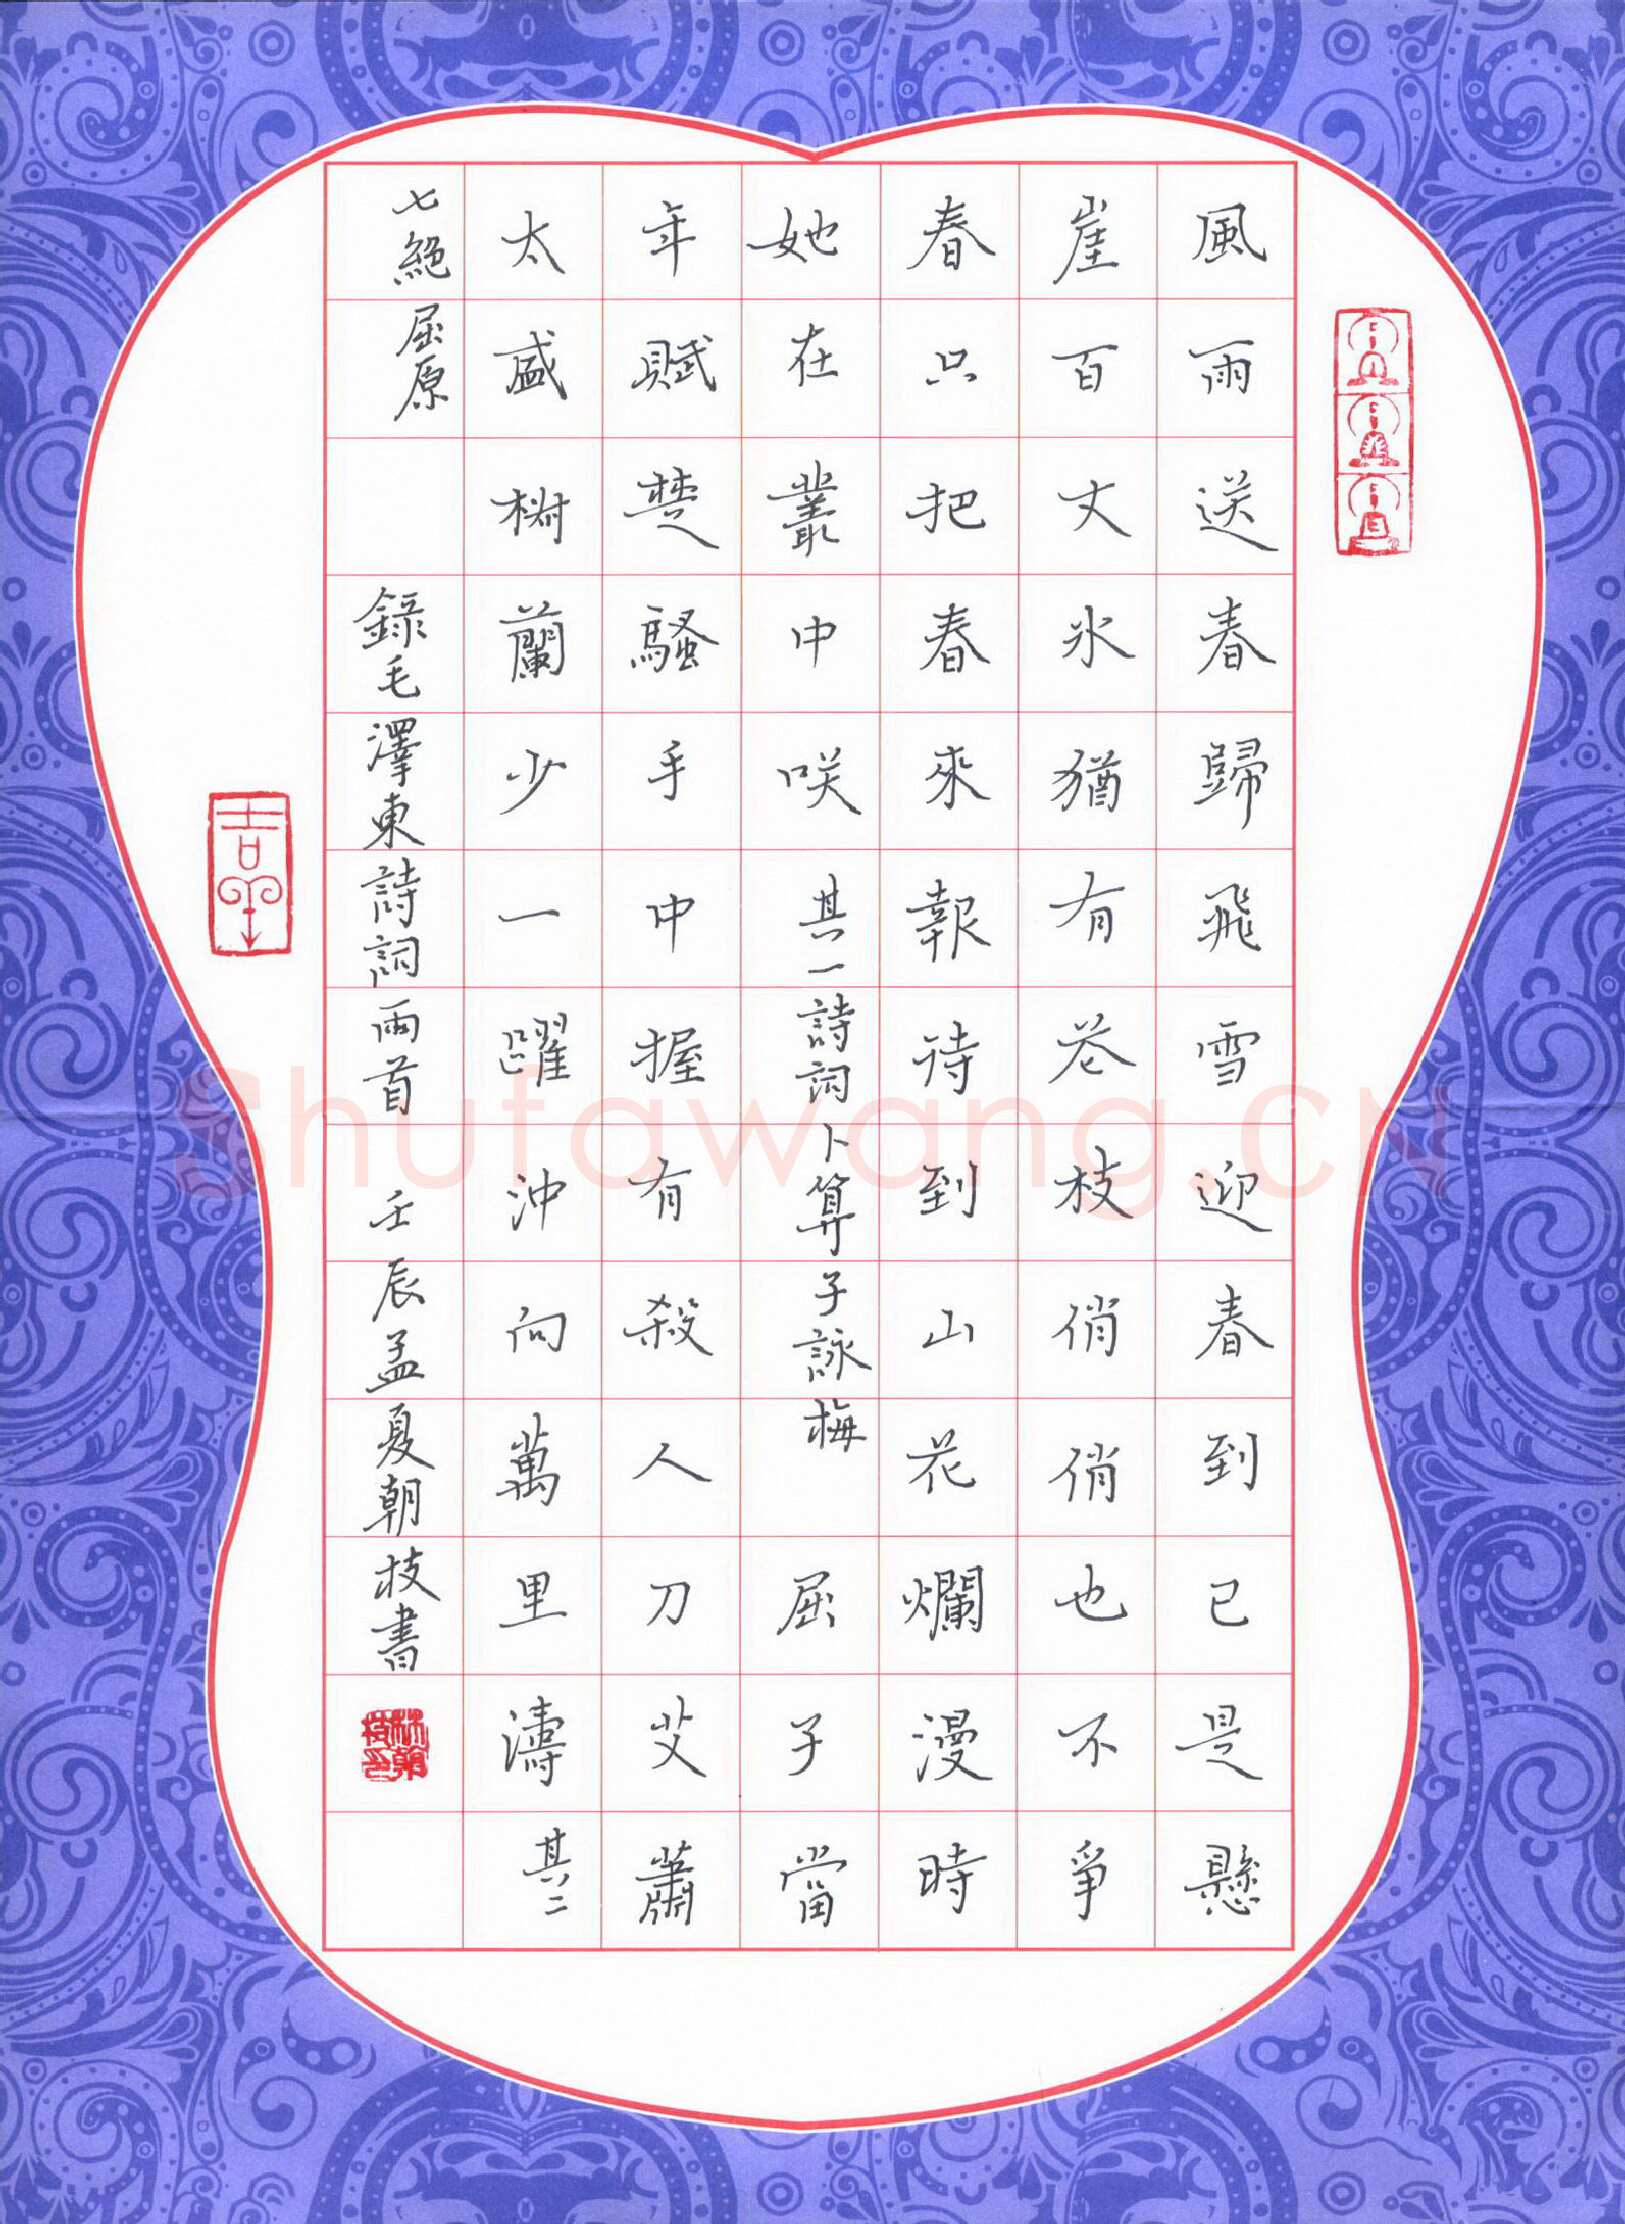 風雨送春歸飛雪迎春到已是懸
崖百丈氷猶有花枝俏俏也不爭
春只把春來報待到山花爛漫時
她在叢中咲 其一 詩詞 卜算子詠梅 屈子當
年賦楚騷手中握有殺人刀艾蕭
太盛椒蘭少一躍沖向萬里濤 其二
七絕 屈原 錄毛澤東詩詞兩首 壬辰孟夏朝枝書
吉
Shufawang.CN